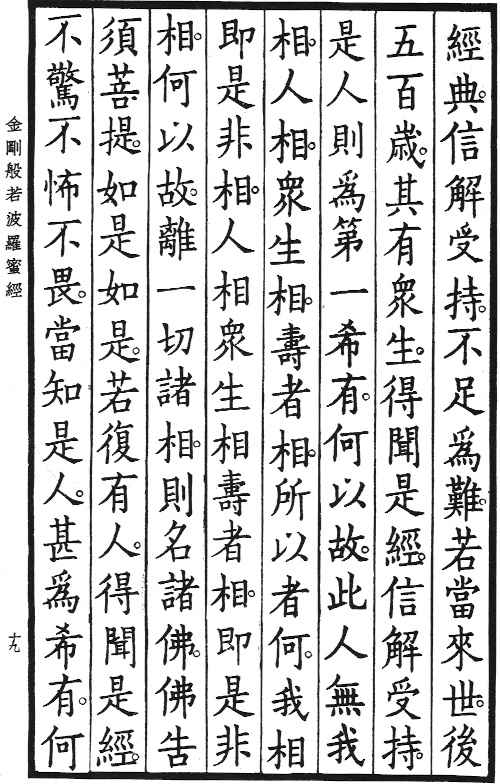 經典。信解受持。不足為難。若當來世。後
五百歲。其有眾生。得聞是經。信解受持。
是人則為第一希有。何以故。此人無我
相。人相。眾生相。壽者相。所以者何。我相
即是非相。人相眾生相壽者相。即是非
相。何以故。離一切諸相。則名諸佛。佛告
須菩提。如是如是。若復有人。得聞是經。
不驚不怖不畏。當知是人。甚為希有。何
金剛般若波羅蜜經
十九